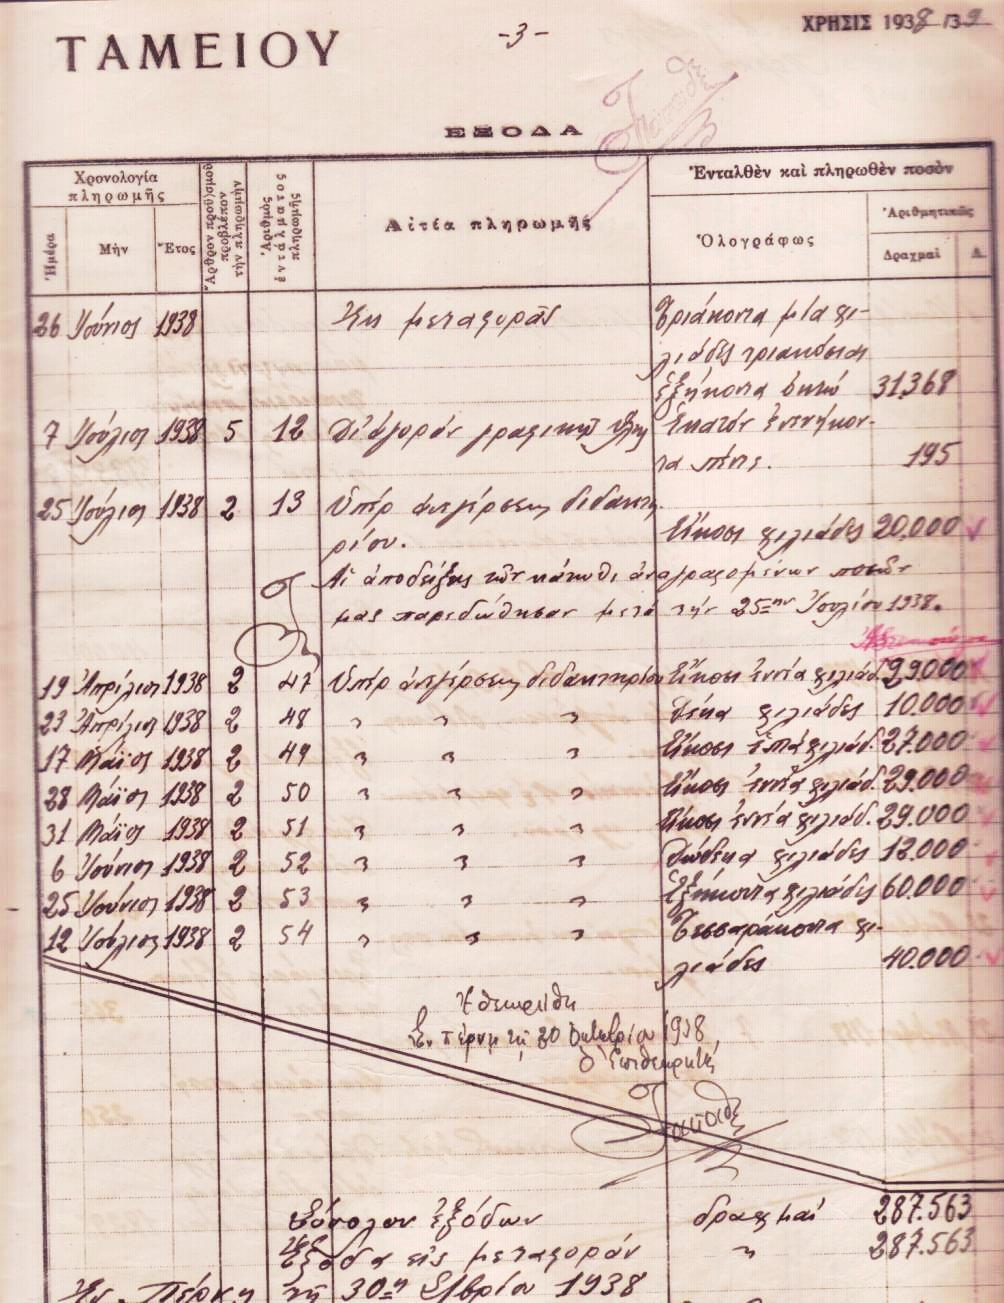 ΤΑΜΕΙΟΥ
-3-
ΧΡΗΣΙΣ 1938/39
ΕΞΟΔΑ
Χρονολογία πληρωμῆς
Ἡμέρα
Μὴν
Ἔτος
Ἄρθρον προϋ)σμοῦ προβλέπον τὴν πληρωμὴν
Ἀριθμὸς ἐντάλματος πληρωμῆς
Αἰτία πληρωμῆς
Ἐνταλθὲν καὶ πληρωθὲν ποσὸν
Ὁλογράφως
Ἀριθμητικῶς
Δραχμαὶ
Λ.
26 Ἰούνιος 1938 Ἐκ μεταφορᾶς Τριάκοντα μία χι-
λιάδες τριακόσιαι
ἑξήκοντα ὀκτώ 31.368
7 Ἰούλιος 1938 5 12 Δι' ἀγορὰν γραφικῆς ὕλης Ἑκατὸν ἐνενήκον-
τα πέντε. 195
25 Ἰούλιος 1938 2 13 Ὑπὲρ ἀνεγέρσεως διδακτη-
ρίου. Εἴκοσι χιλιάδες 20.000
Αἱ ἀποδείξεις τῶν κάτωθι ἀναγραφομένων ποσῶν
μας παρεδώθησαν μετὰ τὴν 25ην Ἰουλίου 1938.
19 Ἀπρίλιος 1938 2 47 Ὑπὲρ ἀνεγέρσεως διδακτηρίου Εἴκοσι ἐννέα χιλιάδ. 29.000
23 Ἀπρίλιος 1938 2 48 " " " Δέκα χιλιάδες 10.000
17 Μάϊος 1938 2 49 " " " Εἴκοσι ἑπτὰ χιλιάδ. 27.000
28 Μάϊος 1938 2 50 " " " Εἴκοσι ἐννέα χιλιάδ. 29.000
31 Μάϊος 1938 2 51 " " " Εἴκοσι ἐννέα χιλιάδ. 29.000
6 Ἰούνιος 1938 2 52 " " " Δώδεκα χιλιάδες 12.000
25 Ἰούνιος 1938 2 53 " " " Ἑξήκοντα χιλιάδες 60.000
12 Ἰούλιος 1938 2 54 " " " Τεσσαράκοντα χι-
λιάδες 40.000
Ἐθεωρήθη
Ἐν Πέρνῃ τῇ 30 Ὀκτωβρίου 1938,
Ὁ Ἐπιθεωρητής
Σύνολον ἐξόδων δραχμαὶ 287.563
Ἔξοδα εἰς μεταφορὰν " 287.563
Ἐν τῇ 30ῃ 1938